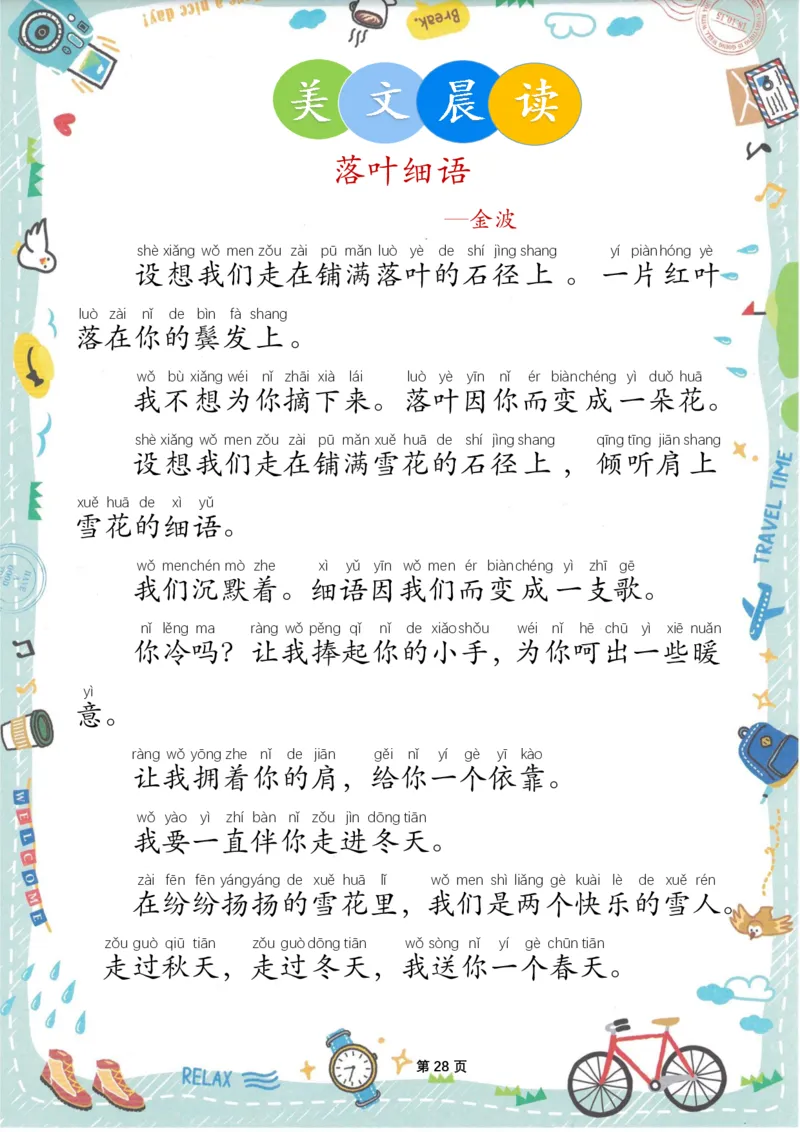 Have a nice day!
Break.
美文晨读
落叶细语
—金波
shè xiǎng wǒ men zǒu zài pū mǎn luò yè de shí jìng shang yí piàn hóng yè
设想我们走在铺满落叶的石径上。一片红叶
luò zài nǐ de bìn fà shang
落在你的鬓发上。
wǒ bù xiǎng wéi nǐ zhāi xià lái luò yè yīn nǐ ér biàn chéng yì duǒ huā
我不想为你摘下来。落叶因你而变成一朵花。
shè xiǎng wǒ men zǒu zài pū mǎn xuě huā de shí jìng shang qīng tīng jiān shang
设想我们走在铺满雪花的石径上，倾听肩上
xuě huā de xì yǔ
雪花的细语。
wǒ men chén mò zhe xì yǔ yīn wǒ men ér biàn chéng yì zhī gē
我们沉默着。细语因我们而变成一支歌。
nǐ lěng ma ràng wǒ pěng qǐ nǐ de xiǎo shǒu wéi nǐ hē chū yì xiē nuǎn
你冷吗？让我捧起你的小手，为你呵出一些暖
yì
意。
ràng wǒ yōng zhe nǐ de jiān gěi nǐ yí gè yī kào
让我拥着你的肩，给你一个依靠。
wǒ yào yì zhí bàn nǐ zǒu jìn dōng tiān
我要一直伴你走进冬天。
zài fēn fēn yáng yáng de xuě huā lǐ wǒ men shì liǎng gè kuài lè de xuě rén
在纷纷扬扬的雪花里，我们是两个快乐的雪人。
zǒu guò qiū tiān zǒu guò dōng tiān wǒ sòng nǐ yí gè chūn tiān
走过秋天，走过冬天，我送你一个春天。
TRAVEL TIME
WELCOME
RELAX
第 28 页